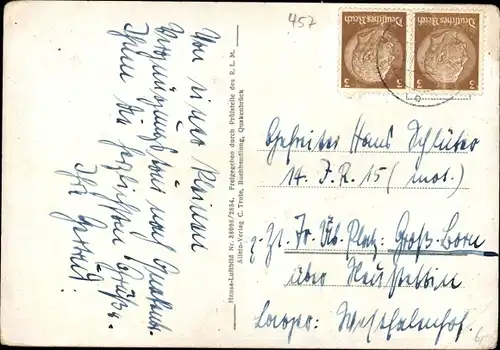 457
Deutsches Reich
3
3
Deutsches Reich
3
3
Von einer kleinen
Vergnügungstour nach Quakenbrück
Ihnen die herzlichsten Grüße.
Ihr
Hansa-Luftbild Nr. 38056/2854. Freigegeben durch Prüfstelle des R. L. M.
Allein-Verlag C. Trute, Buchhandlung, Quakenbrück
Gefreiter Hans Schlüter
14. J. R. 15 (mot.)
z. Zt. Tr. Üb. Platz: Groß-Born
über Neustettin
Lager: Westfalenhof.